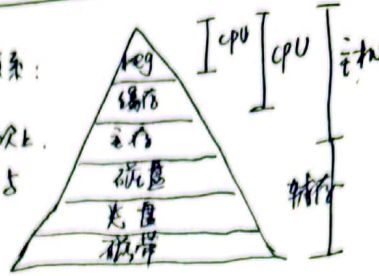 系:
次上
与
Reg
缓存
主存
磁盘
光盘
磁带
CPU
CPU
主机
辅存